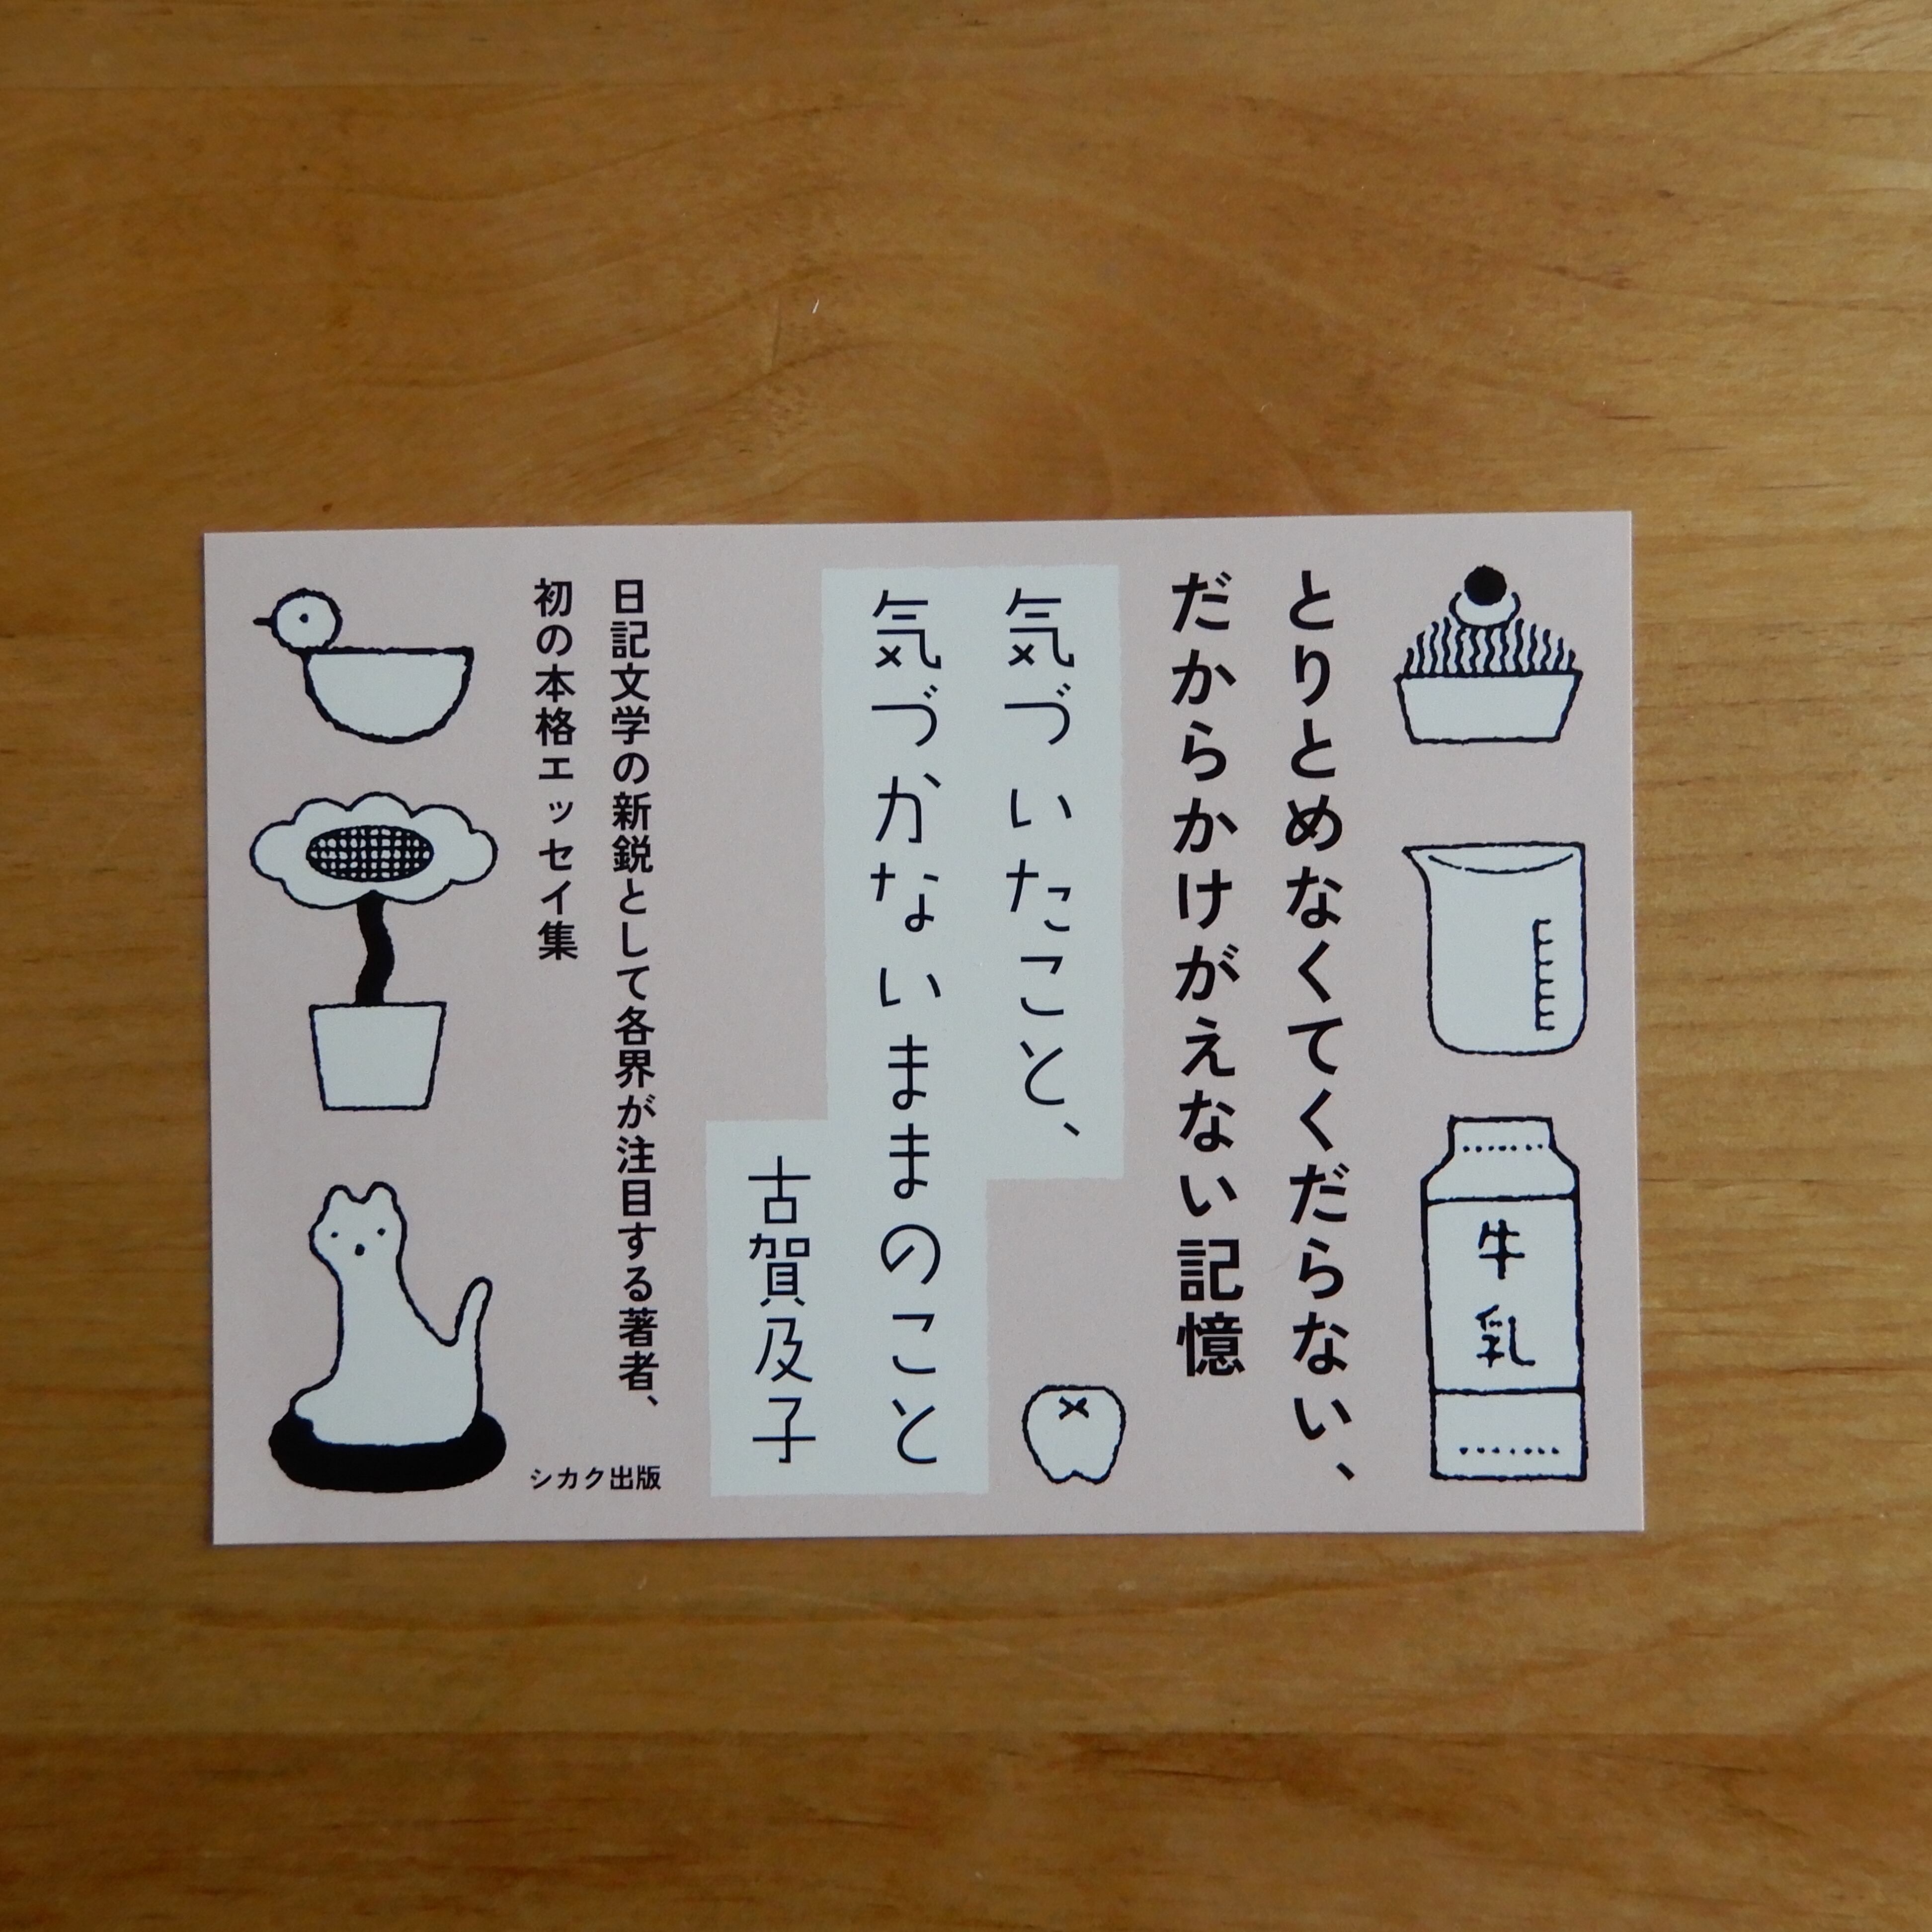 とりとめなくてくだらない、
だからかけがえない記憶
気づいたこと、
気づかないままのこと
古賀及子
日記文学の新鋭として各界が注目する著者、
初の本格エッセイ集
シカク出版
牛乳